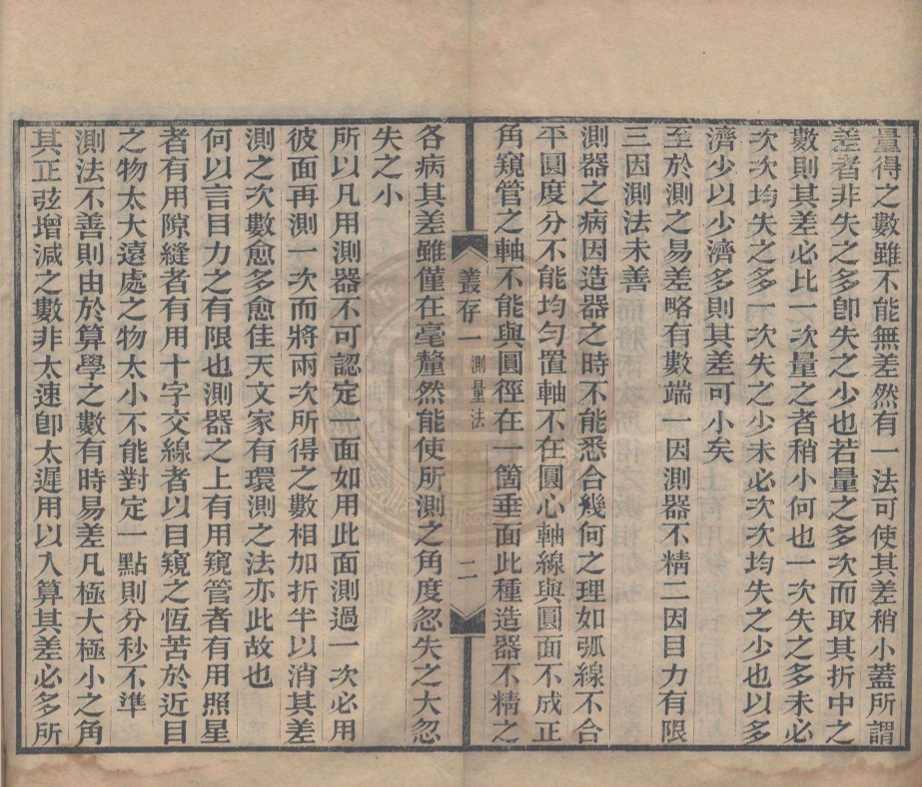 量得之數雖不能無差然有一法可使其差稍小蓋所謂
差者非失之多卽失之少也若量之多次而取其折中之
數則其差必比一次量之者稍小何也一次失之多未必
次次均失之多一次失之少未必次次均失之少也以多
濟少以少濟多則其差可小矣
至於測之易差略有數端一因測器不精二因目力有限
三因測法未善
測器之病因造器之時不能悉合幾何之理如弧線不合
平圓度分不能均勻置軸不在圓心軸線與圓面不成正
角窺管之軸不能與圓徑在一箇垂面此種造器不精之
叢存一 測量法 二
各病其差雖僅在毫釐然能使所測之角度忽失之大忽
失之小
所以凡用測器不可認定一面如用此面測過一次必用
彼面再測一次而將兩次所得之數相加折半以消其差
測之次數愈多愈佳天文家有環測之法亦此故也
何以言目力之有限也測器之上有用窺管者有用照星
者有用隙縫者有用十字交線者以目窺之恆苦於近目
之物太大遠處之物太小不能對定一點則分秒不準
測法不善則由於算學之數有時易差凡極大極小之角
其正弦增減之數非太速卽太遲用以入算其差必多所